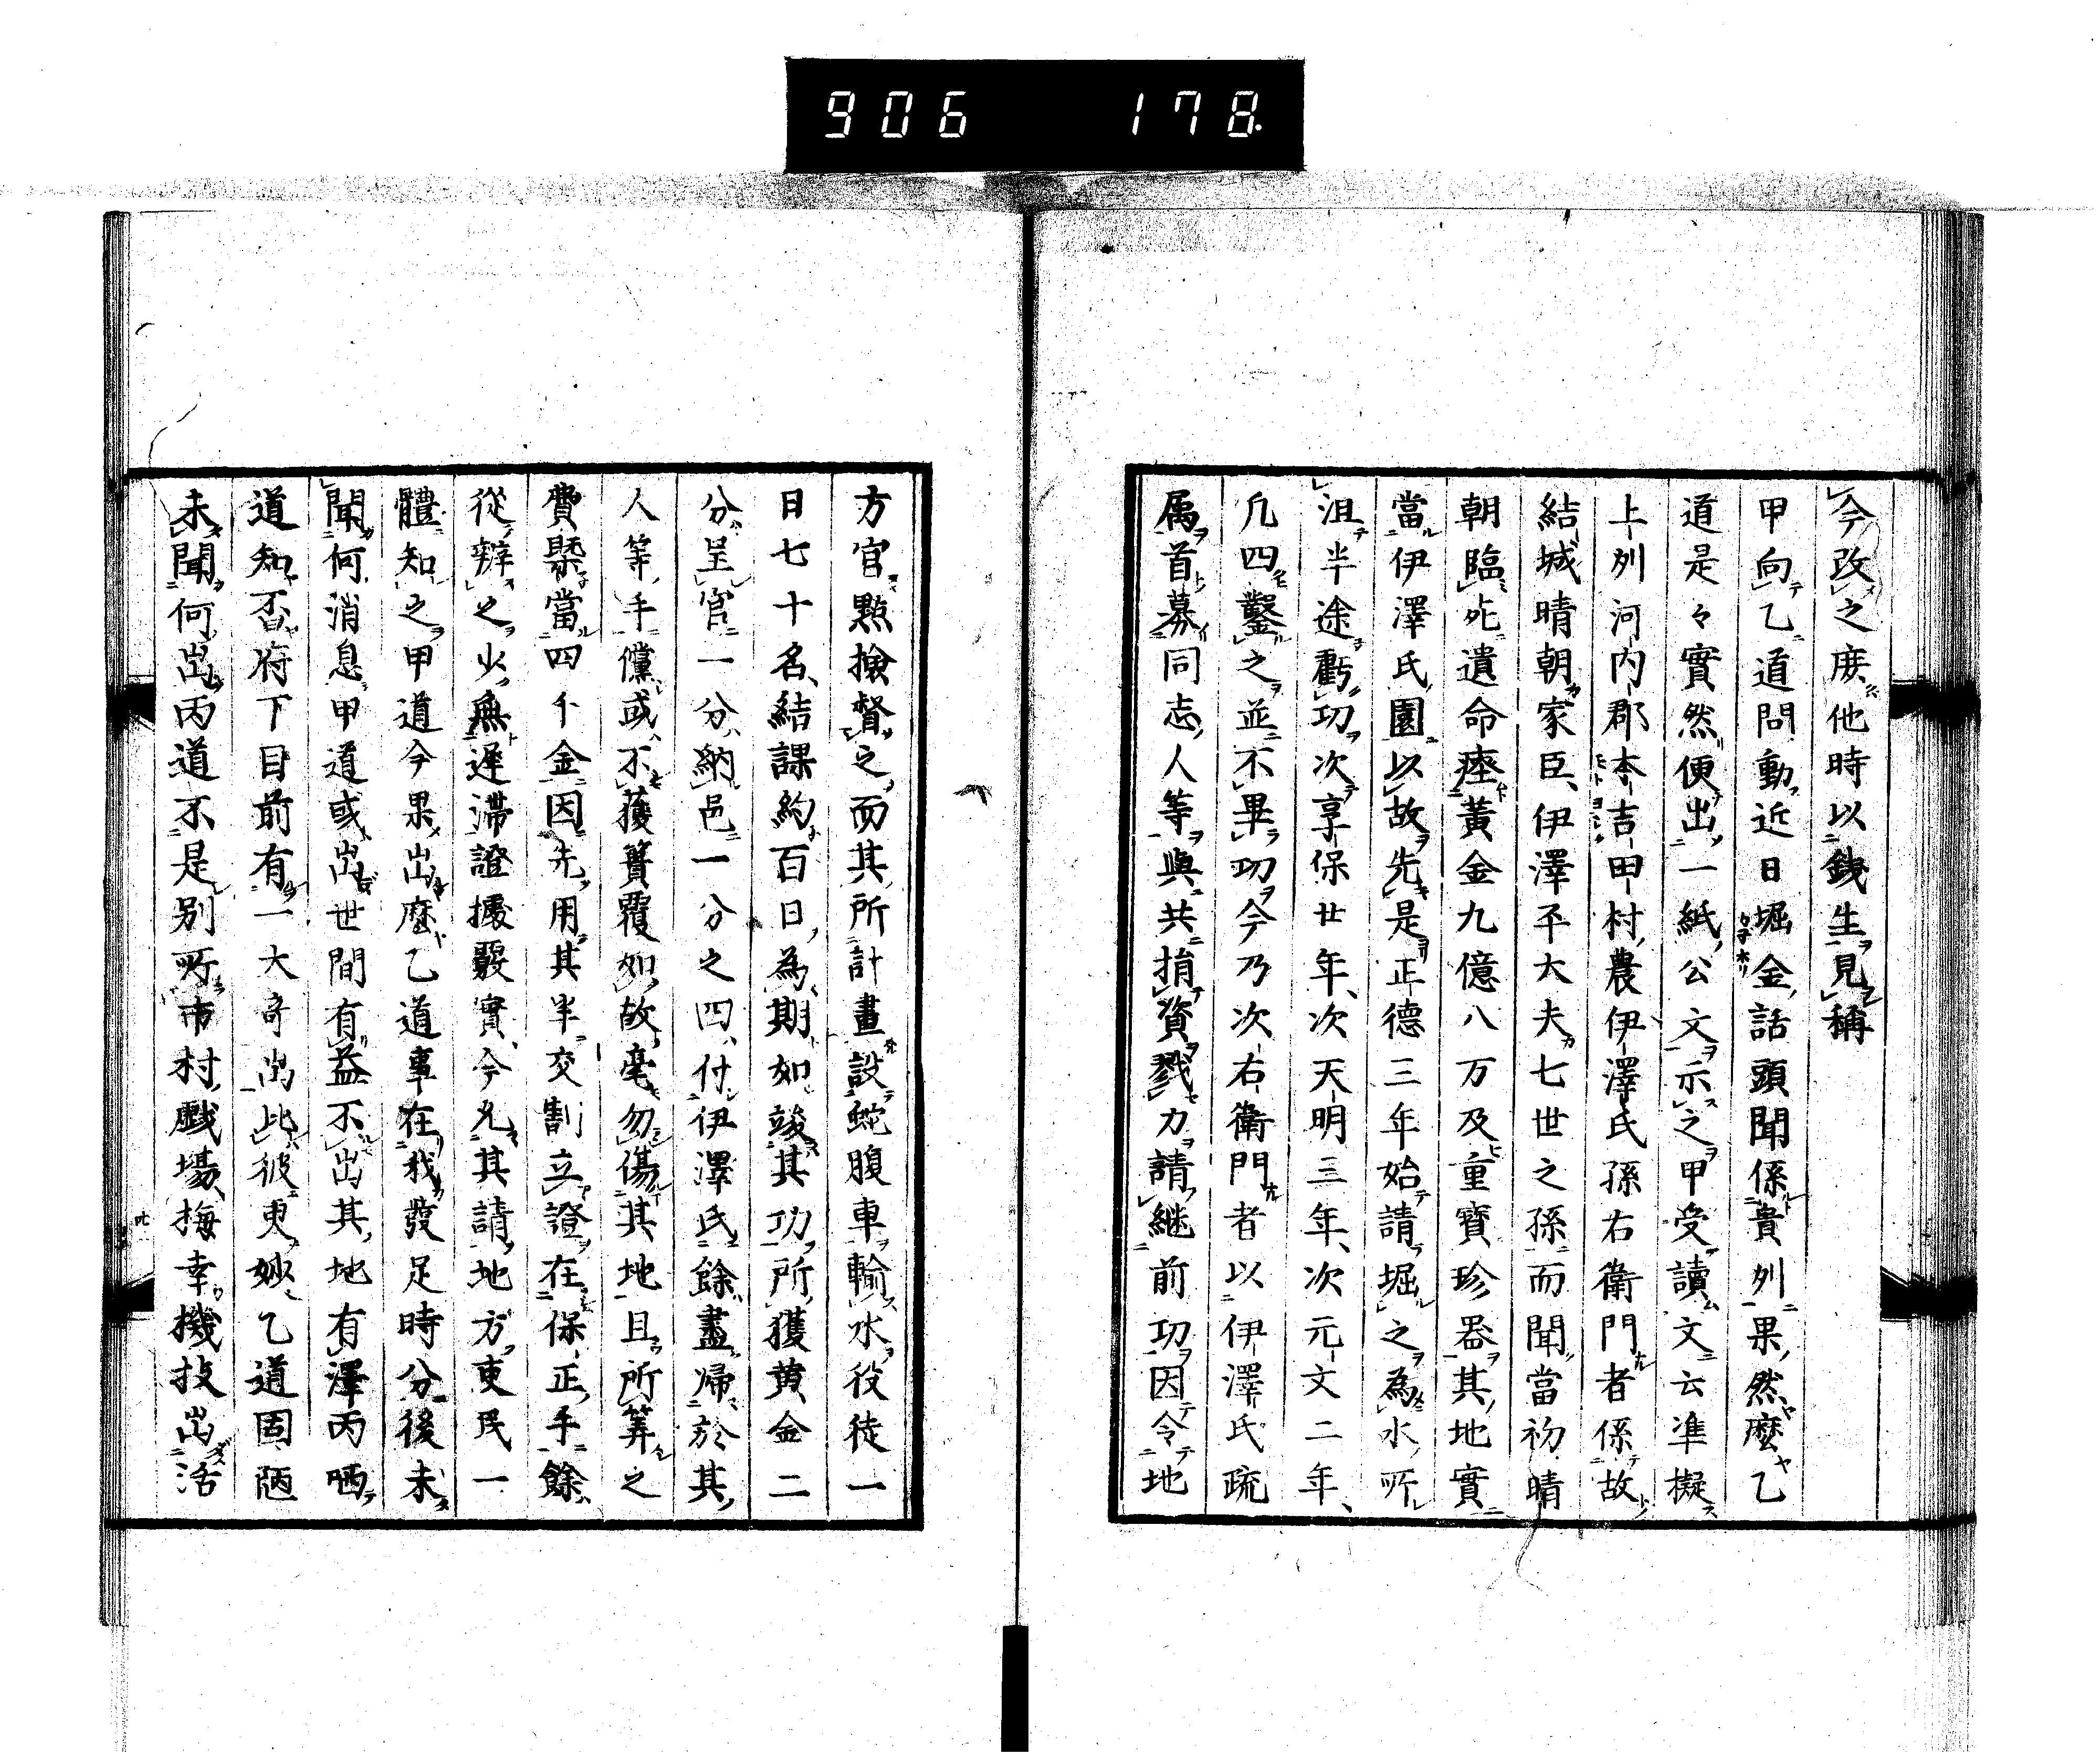 906 178
今改之庻他時以錢生見稱
甲向乙道問動近日堀金話頭聞係貴列果然麽乙
道是々實然便出一紙公文示之甲受讀文云準擬
上列河内郡本吉田村農伊澤氏孫右衛門者係故
結城晴朝家臣伊澤平大夫七世之孫而聞當初晴
朝臨死遺命瘞黃金九億八万及重寶珍器其地實
當伊澤氏園以故先是正德三年始請堀之為水所
沮半途虧功次享保廿年次天明三年次元文二年
凡四鑿之並不畢功今乃次右衛門者以伊澤氏疏
属首募同志人等與共捐資戮力請継前功因令地
方官㸃撿督之而其所計畫設蛇腹車輸水役徒一
日七十名結課約百日為期如竣其功所獲黄金二
分呈官一分納邑一分之四付伊澤氏餘盡歸於其
人等手儻或不獲簣覆如故毫勿傷其地且所筭之
費槩當四千金因先用其半交割立證在保正手餘
從辦之必無遲滯證據覈實今允其請地方吏民一
體知之甲道今果出麽乙道事在我發足時分後未
聞何消息甲道或出世間有益不出其地有澤丙哂
道知否府下目前有一大奇出比彼更妙乙道固陋
未聞何出丙道不是别所市村戲場梅幸機技出活